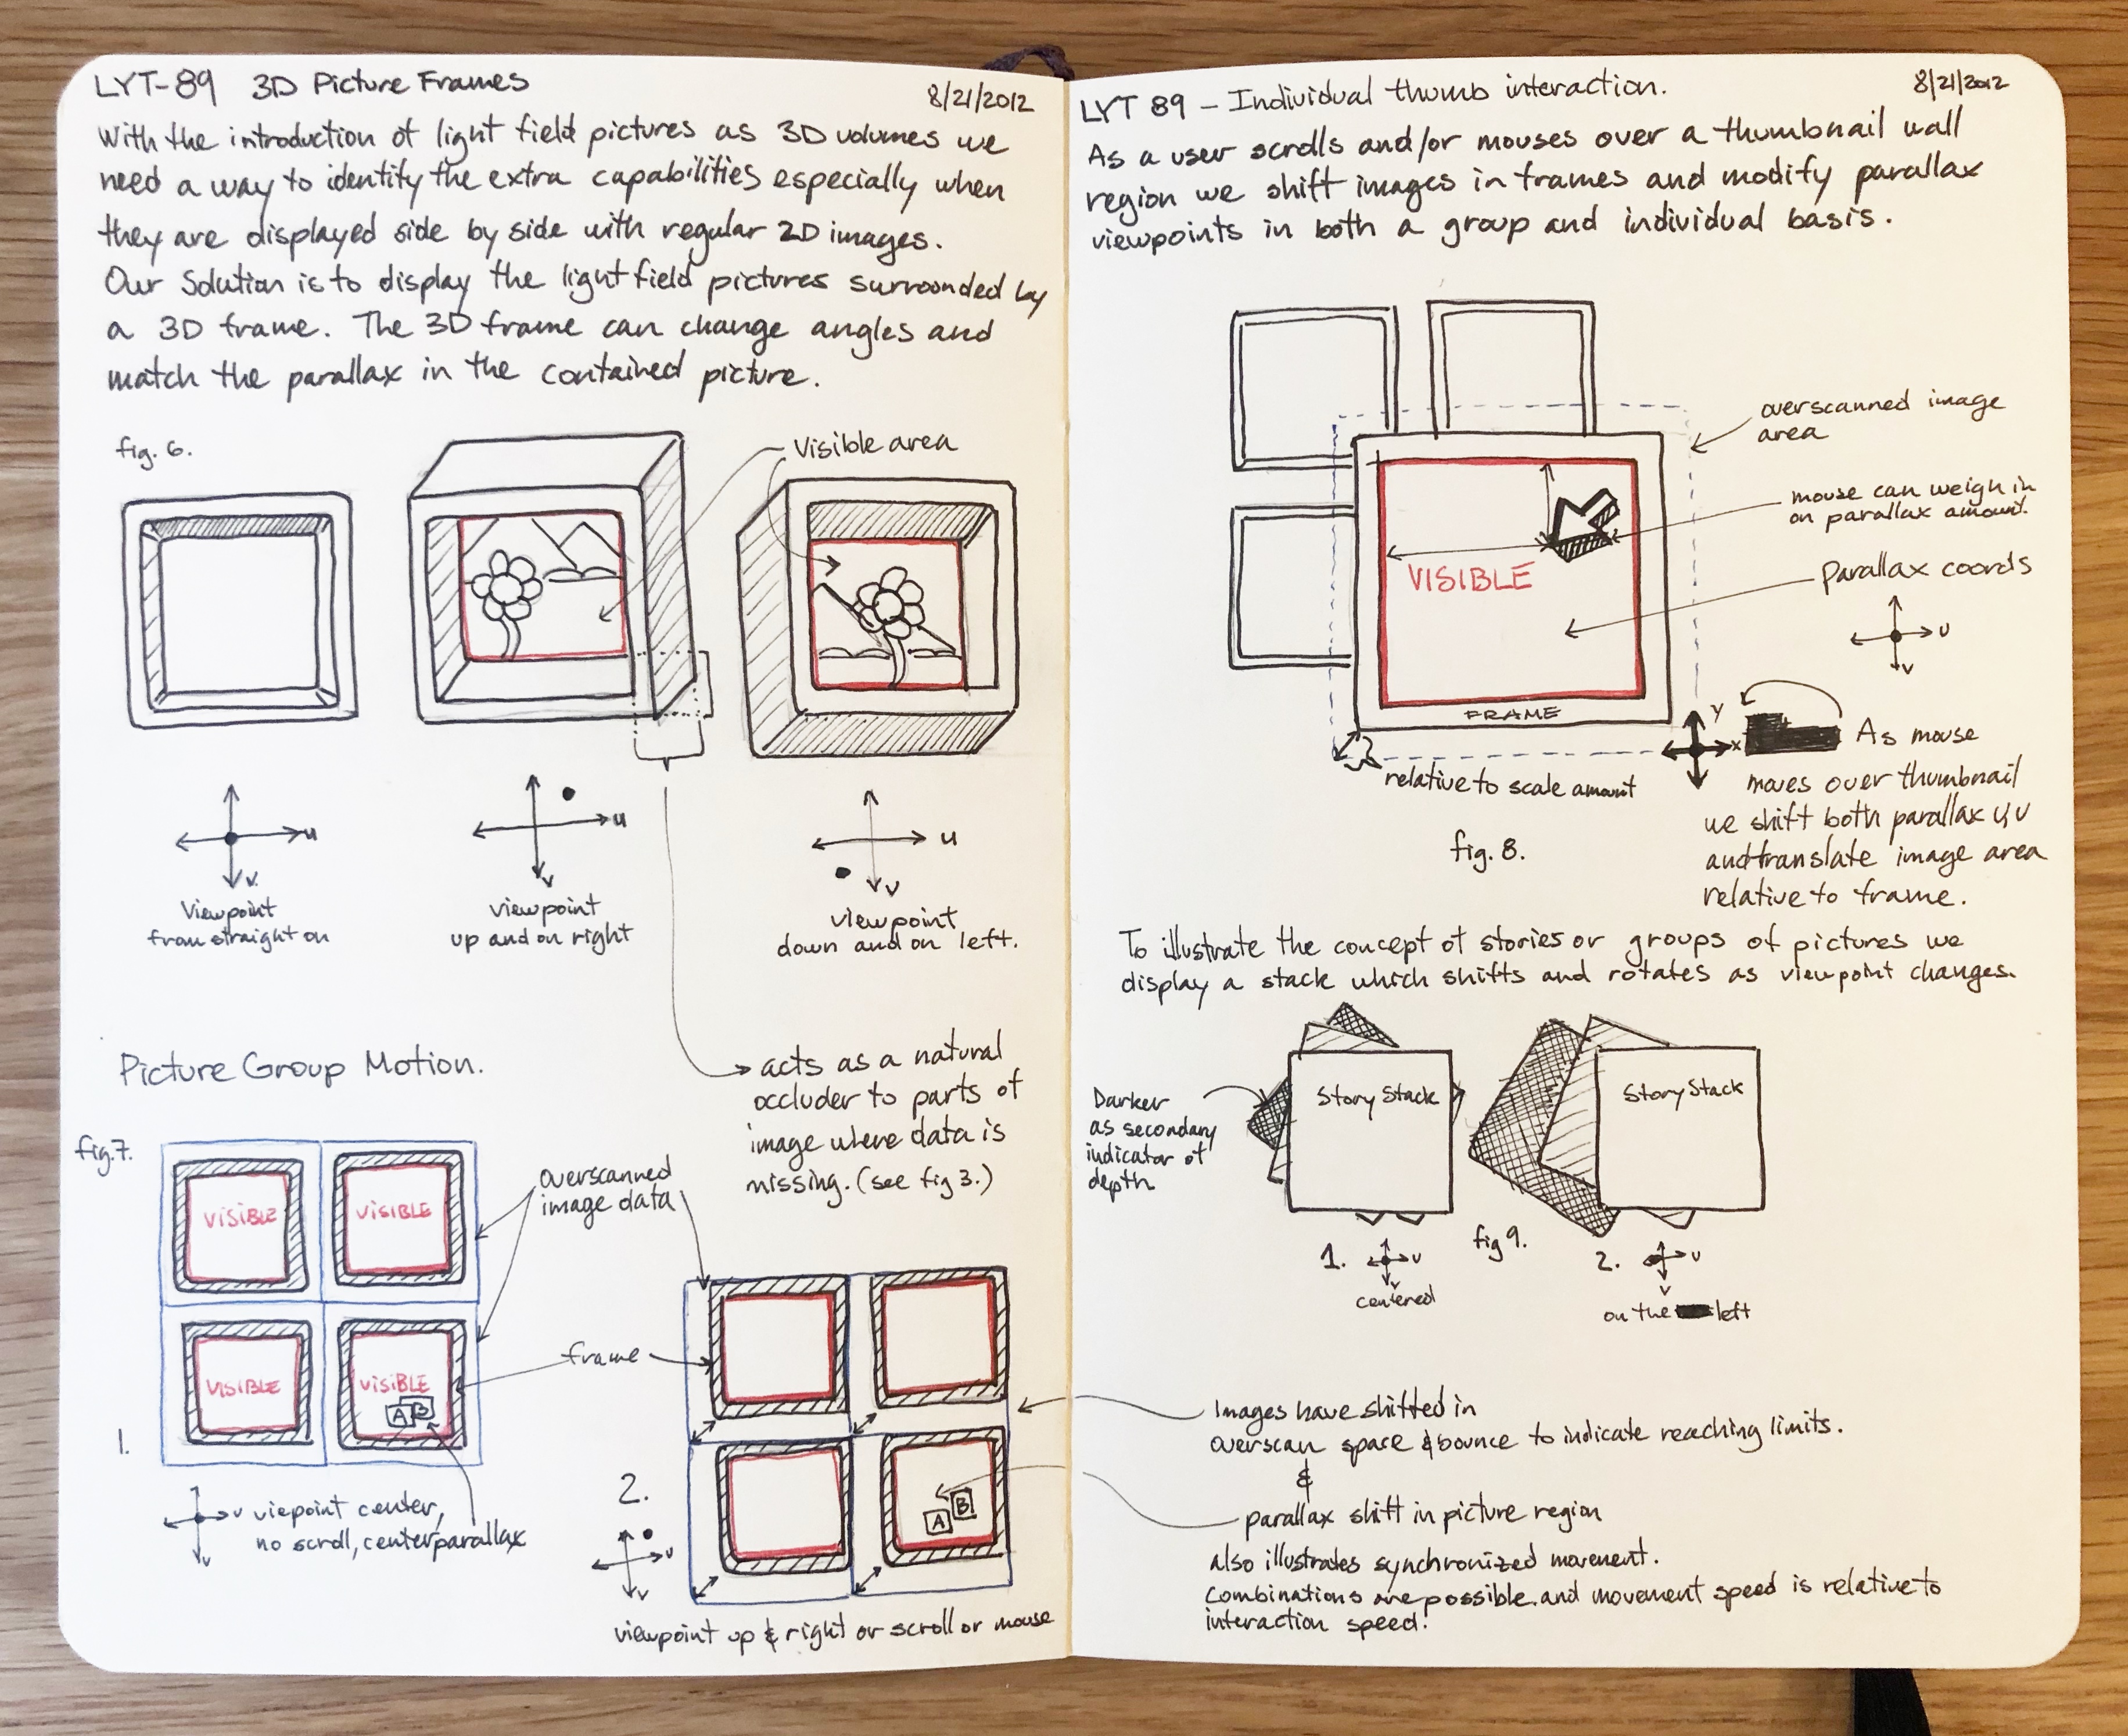 LYT-89 3D Picture Frames
8/21/2012
With the introduction of light field pictures as 3D volumes we
need a way to identify the extra capabilities especially when
they are displayed side by side with regular 2D images.
Our Solution is to display the light field pictures surrounded by
a 3D frame. The 3D frame can change angles and
match the parallax in the contained picture.
fig. 6.
Visible area
u
v
Viewpoint
from straight on
u
v
viewpoint
up and on right
u
v
viewpoint
down and on left.
acts as a natural
occluder to parts of
image where data is
missing. (see fig 3.)
Picture Group Motion.
fig.7.
VISIBLE
VISIBLE
VISIBLE
VISIBLE
A B
overscanned
image data
frame
1.
v
v
viepoint center,
no scroll, center parallax
2.
A
B
v
v
viewpoint up & right or scroll or mouse
LYT 89 – Individual thumb interaction.
8/21/2012
As a user scrolls and/or mouses over a thumbnail wall
region we shift images in frames and modify parallax
viewpoints in both a group and individual basis.
overscanned image
area
mouse can weigh in
on parallax amount.
VISIBLE
Parallax coords
u
v
FRAME
y
x
relative to scale amount
As mouse
moves over thumbnail
we shift both parallax u,v
and translate image area
relative to frame.
fig. 8.
To illustrate the concept of stories or groups of pictures we
display a stack which shifts and rotates as viewpoint changes.
Darker
as secondary
indicator of
depth
Story Stack
Story Stack
fig 9.
1.
u
v
centered
2.
u
v
on the left
Images have shifted in
overscan space & bounce to indicate reaching limits.
&
parallax shift in picture region
also illustrates synchronized movement.
Combinations are possible. and movement speed is relative to
interaction speed!